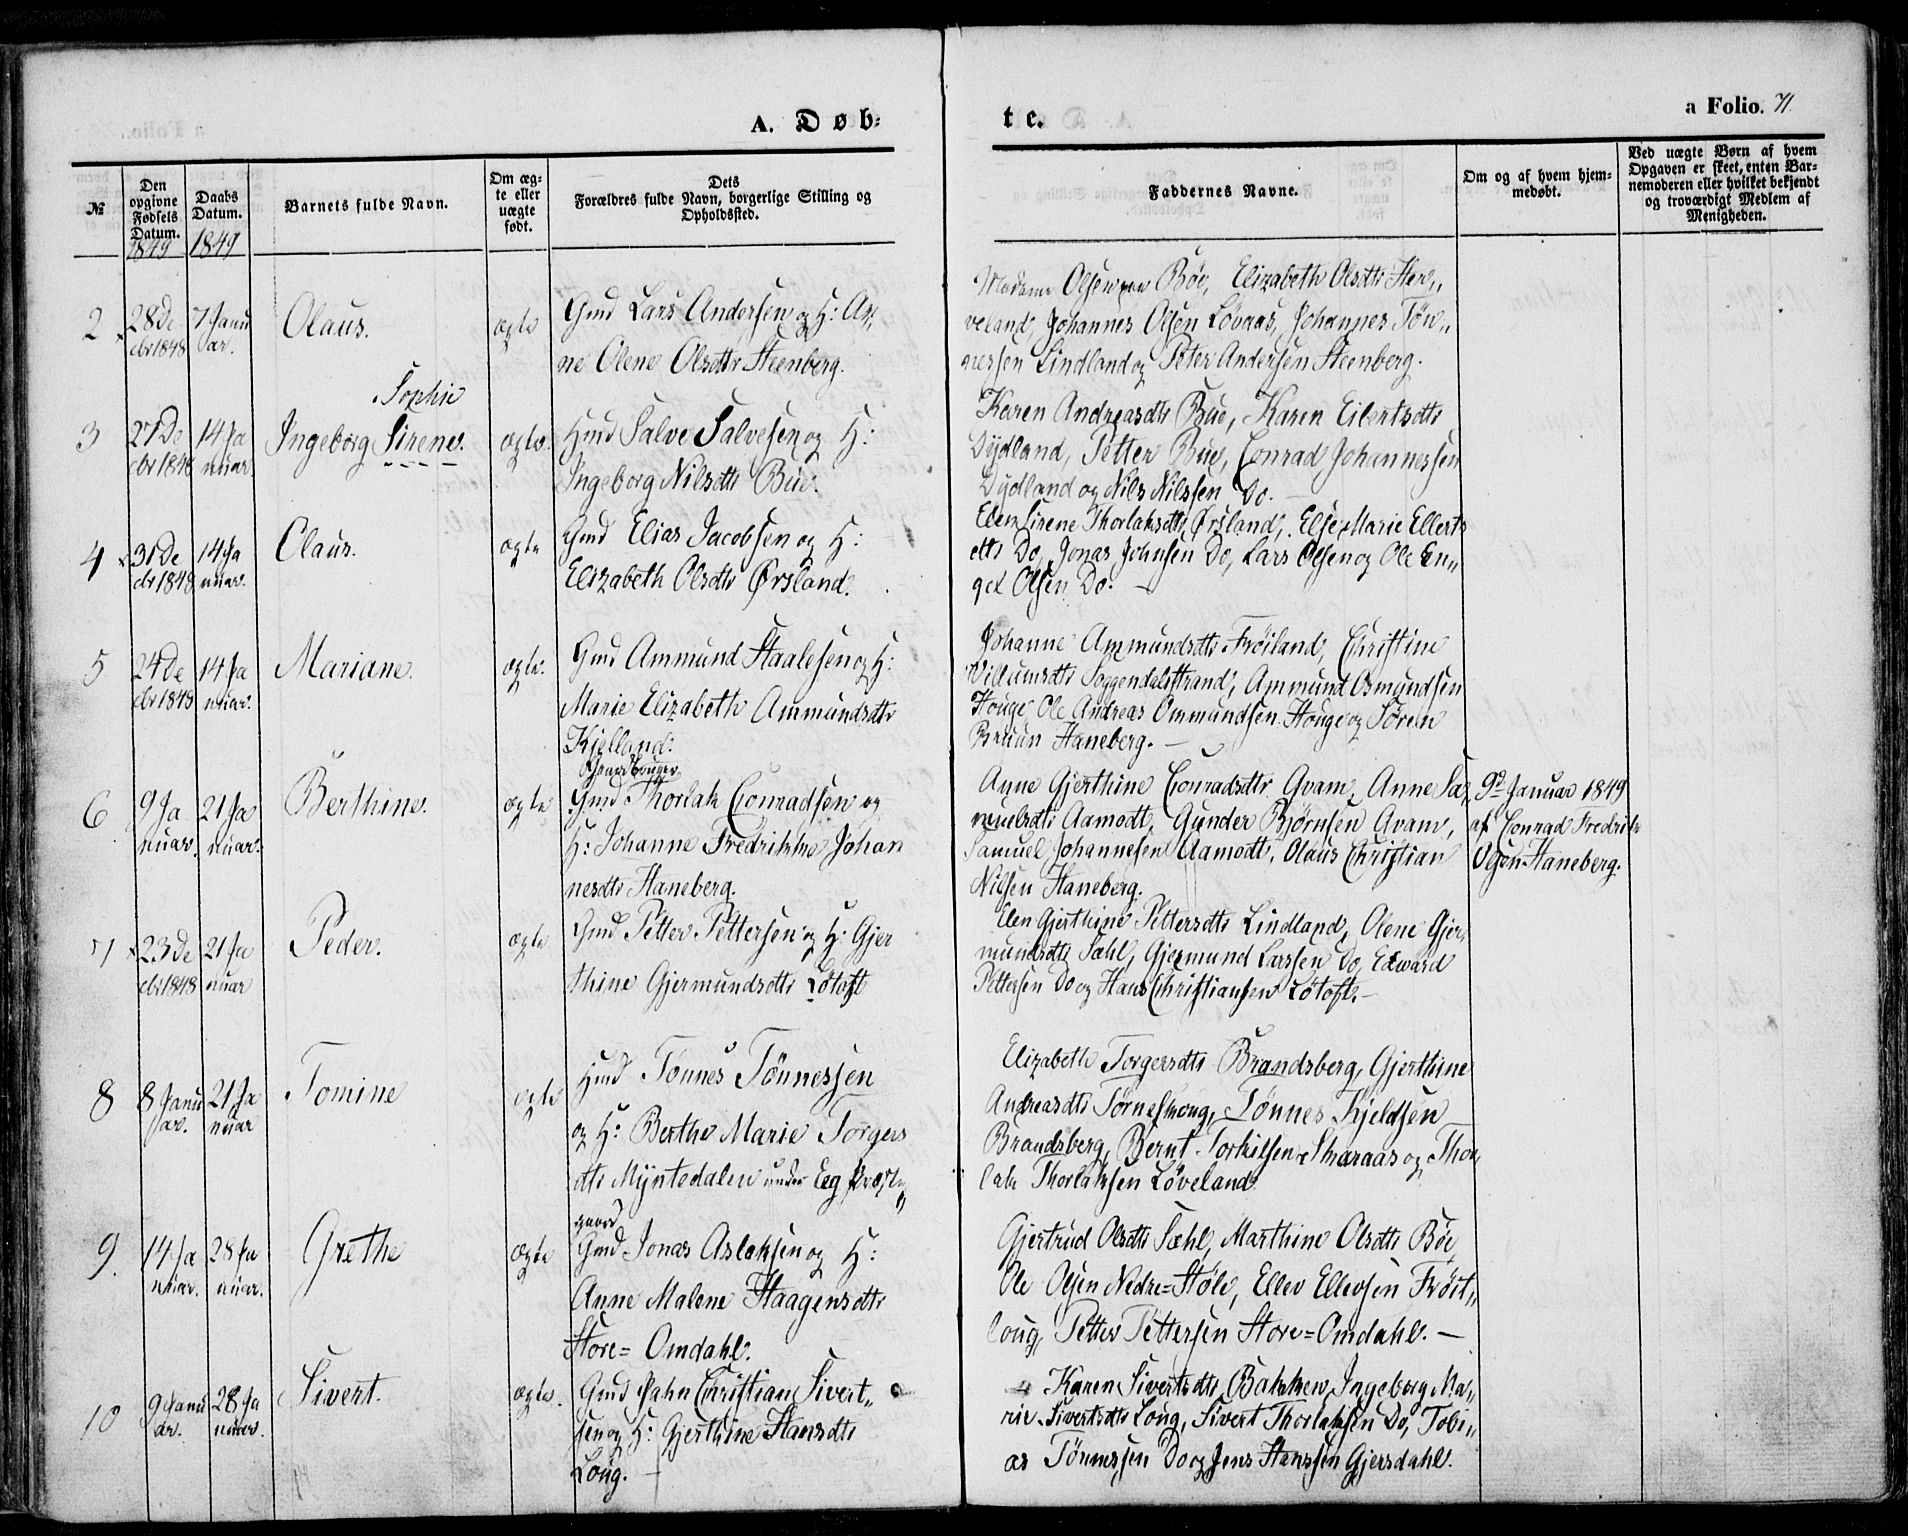 A. Døb=
te.
a Folio. 71
№
Den opgivne Fødsels Datum.
1849
Daabs Datum.
1849
Barnets fulde Navn.
Om æg-
te eller
uægte
født.
Dets
Forældres fulde Navn, borgerlige Stilling og
Opholdssted.
Faddernes Navne.
Om og af hvem hjem-
medøbt.
Ved uægte Børn af hvem
Opgaven er skeet, enten Bar-
nemoderen eller hvilket bekjendt
og troværdigt Medlem af
Menigheden.
2
28 De
cbr 1848
7 Janu
ar.
Olaus.
ægte
Gmd Lars Andersen og H: An,,
ne Olene Olsdtr Steenberg.
Madame Olsen paa Bøe, Elizabeth Olsdtr Her,,
veland, Johannes Olsen Løvaas, Johannes Tøn,,
nessen Lindland og Peter Andersen Steenberg.
3
27 De
cbr 1848
14 Ja
nuar
Sophie
Ingeborg Sirene.
ægte.
Hmd Salve Salvesen og H:
Ingeborg Nilsdtr Bue.
Karen Andreasdtr Bue, Karen Eilertsdtr
Dydland, Petter Bue, Conrad Johannessen
Dydland og Nils Nilssen Do. —
4
31 De
cbr 1848
14 Ja
nuar.
Olaus.
ægte
Gmd Elias Jacobsen og H:
Elizabeth Olsdtr Ørsland.
Elen Sirene Thorlaksdtr Ørsland, Else Marie Ellerts
dtr Do, Jonas Johnsen Do, Lars Olsen og Ole En,,
gel Olsen Do: —
5
24 De
cbr 1848
14 Ja
nuar.
Mariane.
ægte.
Gmd Ammund Staalesen og H:
Marie Elizabeth Ammundsdtr
Kjelland.
Johanne Ammundsdtr Frøiland, Christine
Willumsdtr Soggendalsstrand, Ammund Osmundsen
Houge Ole Andreas Ommundsen Houge og Søren
Bruun Haneberg. —
6
9 Ja
nuar.
21 Ja
nuar.
Berthine.
ægte
Gmd Thorlak Conradsen og
H: Johanne Fredrikke Johan
nesdtr Haneberg.
Anne Gjerthine Conradsdtr Qvam, Anne Sa,,
muelsdtr Aamodt, Gunder Bjørnsen Qvam,
Samuel Johannesen Aamodt, Olaus Christian
Nilsen Haneberg.
9d Januar 1849
af Conrad Fredrik
Olsen Haneberg.
7
23 De
cbr 1848
21 Ja
nuar
Peder.
ægte
Gmd Petter Pettersen og H: Gjer
thine Gjermundsdtr Løtoft
Elen Gjerthine Pettersdtr Lindland, Olene Gjer,
mundsdtr Sæhl, Gjermund Larssen Do, Edward
Pettersen Do og Hans Christiansen Løtoft. —
8
8 Janu
ar.
21 Ja
nuar
Tomine
ægte
Hmd Tønnes Tønnessen
og H: Berthe Marie Torgers
dtr Myntedalen under Eeg Præste,,
gaard
Elizabeth Torgersdtr Brandsberg, Gjerthine
Andreasdtr Tørneskoug, Tønnes Kjeldsen
Brandsberg, Bernt Torkilsen Skaraas og Thor,
lak Thorlaksen Løveland
9.
14 Ja
nuar.
28 Ja
nuar.
Grethe
ægte
Gmd Jonas Aslaksen og H:
Anne Malene Haagensdtr
Store= Omdahl.
Gjertrud Olsdtr Sæhl, Marthine Olsdtr Bøe,
Ole Olsen Nedre=Støle, Ellev Ellevsen Frøit,,
loug, Petter Pettersen Store=Omdahl. —
10
9 Janu
ar.
28 Ja
nuar.
Sivert.
ægte.
Gmd Jahn Christian Sivert,,
sen og H: Gjerthine Hansdtr
Loug. —
Karen Sivertsdtr Bakken, Ingeborg Ma,,
rie Sivertsdtr Loug, Sivert Thorlaksen Do, Tobi,,
as Tønnessen Do og Jens Hanssen Gjersdahl.